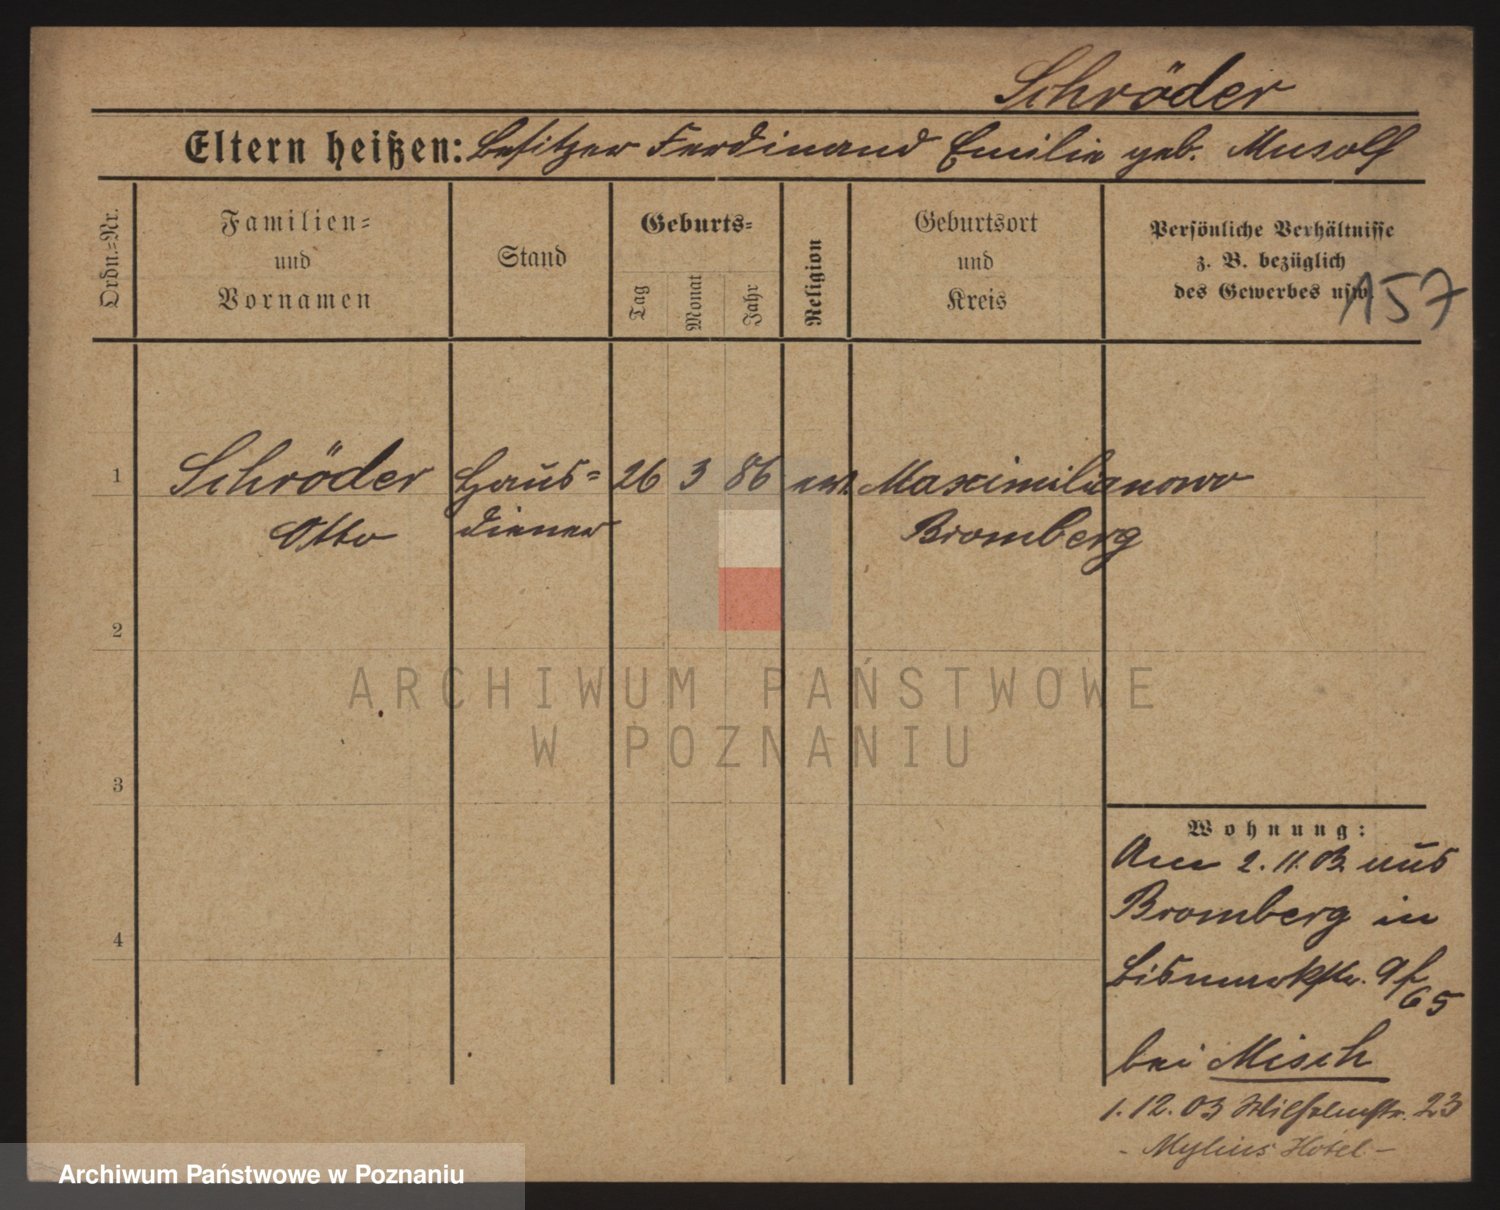 Schröder
Eltern heißen: Besitzer Ferdinand Emilie geb. Musolf
Ordn.=Nr.
Familien=
und
Vornamen
Stand
Geburts=
Tag
Monat
Jahr
Religion
Geburtsort
und
Kreis
Persönliche Verhältnisse
z. B. bezüglich
des Gewerbes usw.
157
1 Schröder Haus= 26 3 86 Maximilianowo
Otto diener Bromberg
2
3
4
Wohnung:
Am 2. 11. 03. aus
Bromberg in
Bismarkstr. 9
65
bei Misch
1. 12. 03 Wilhelmstr. 23
- Mylius Hotel -
ARCHIWUM PAŃSTWOWE
W POZNANIU
Archiwum Państwowe w Poznaniu